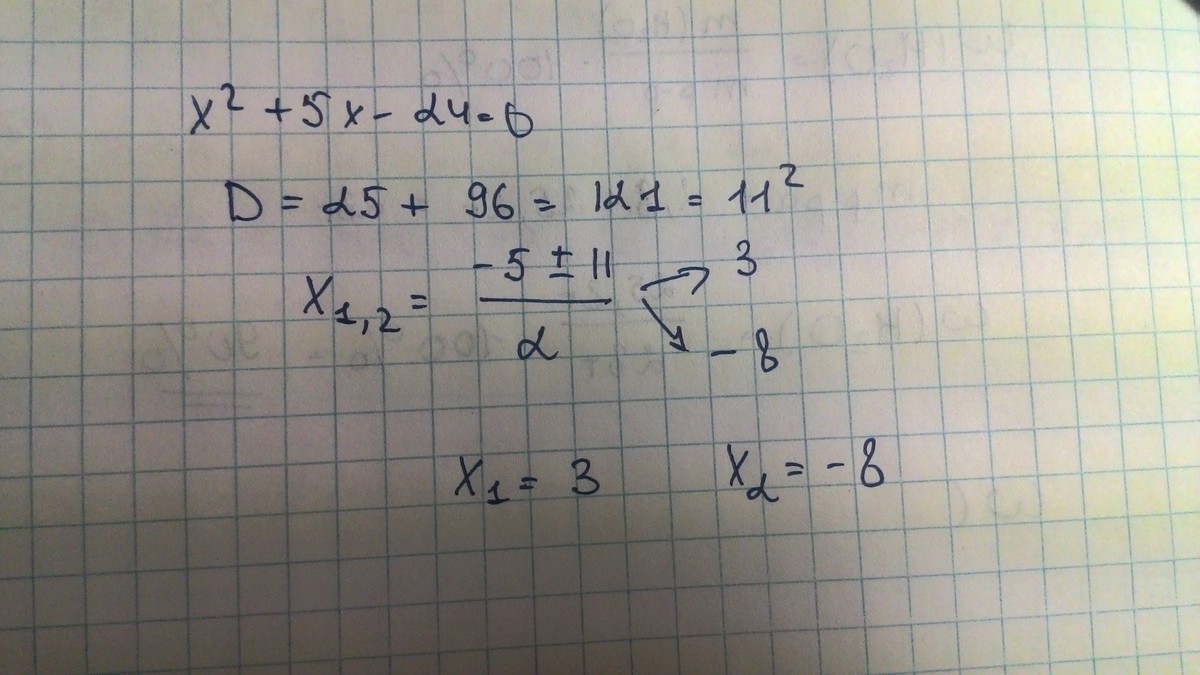 x² + 5x - 24 = 0
D = 25 + 96 = 121 = 11²
x₁,₂ = (-5 ± 11) / 2 → 3 ↘ -8
x₁ = 3 x₂ = -8